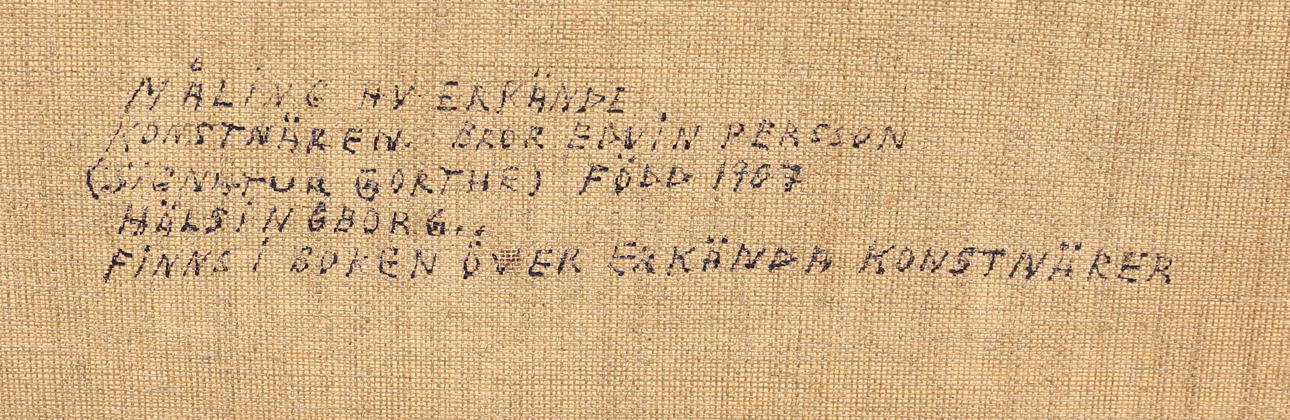 MÅLING AV ERKÄNDE
KONSTNÄREN. BROR EDVIN PERSSON
(SIGNATUR GORTHE) FÖDD 1907
HÄLSINGBORG..
FINNS I BOKEN ÖVER ERKÄNDA KONSTNÄRER